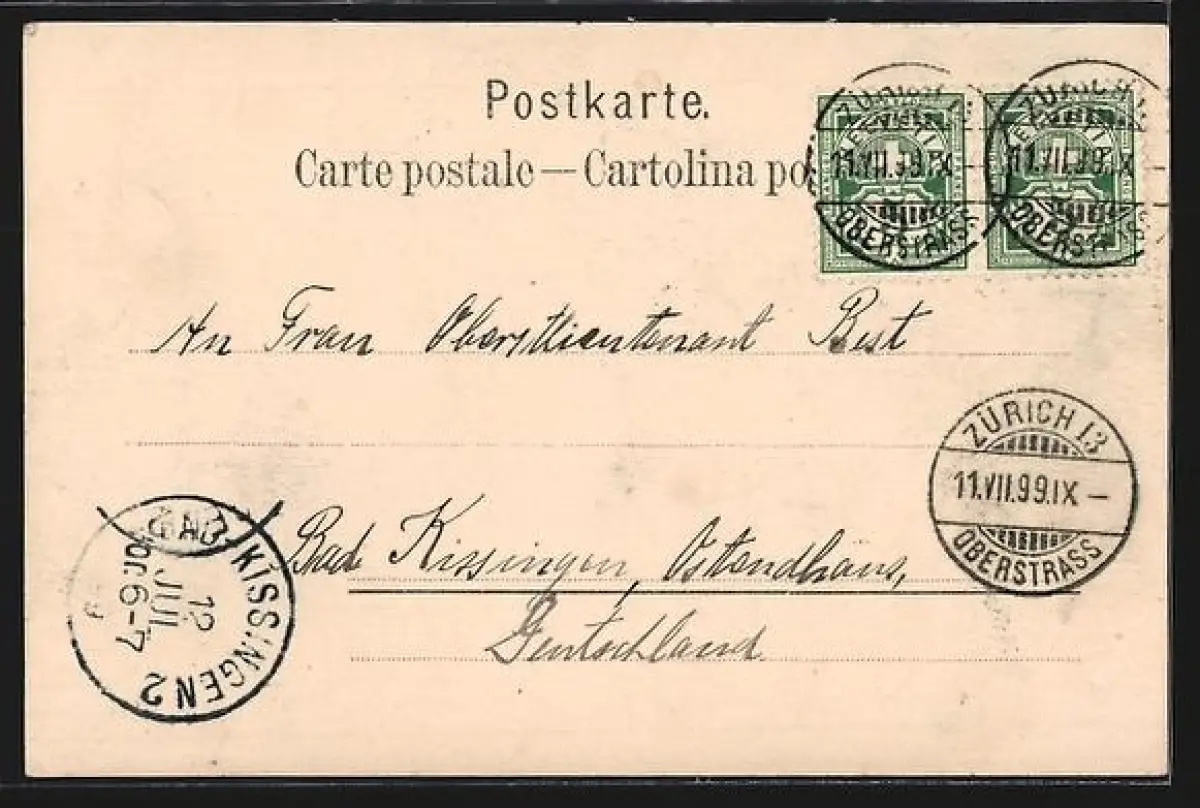 Postkarte.
Carte postale — Cartolina po
ZÜRICH 13
11.VII.99.IX –
OBERSTRASS
ZÜRICH 13
11.VII.99.IX –
OBERSTRASS
An Frau Oberstlieutenant Best
ZÜRICH 13
11.VII.99.IX –
OBERSTRASS
Bad Kissingen, Ostendhaus,
Deutschland.
BAD KISSINGEN 2
12
JUL
6-7